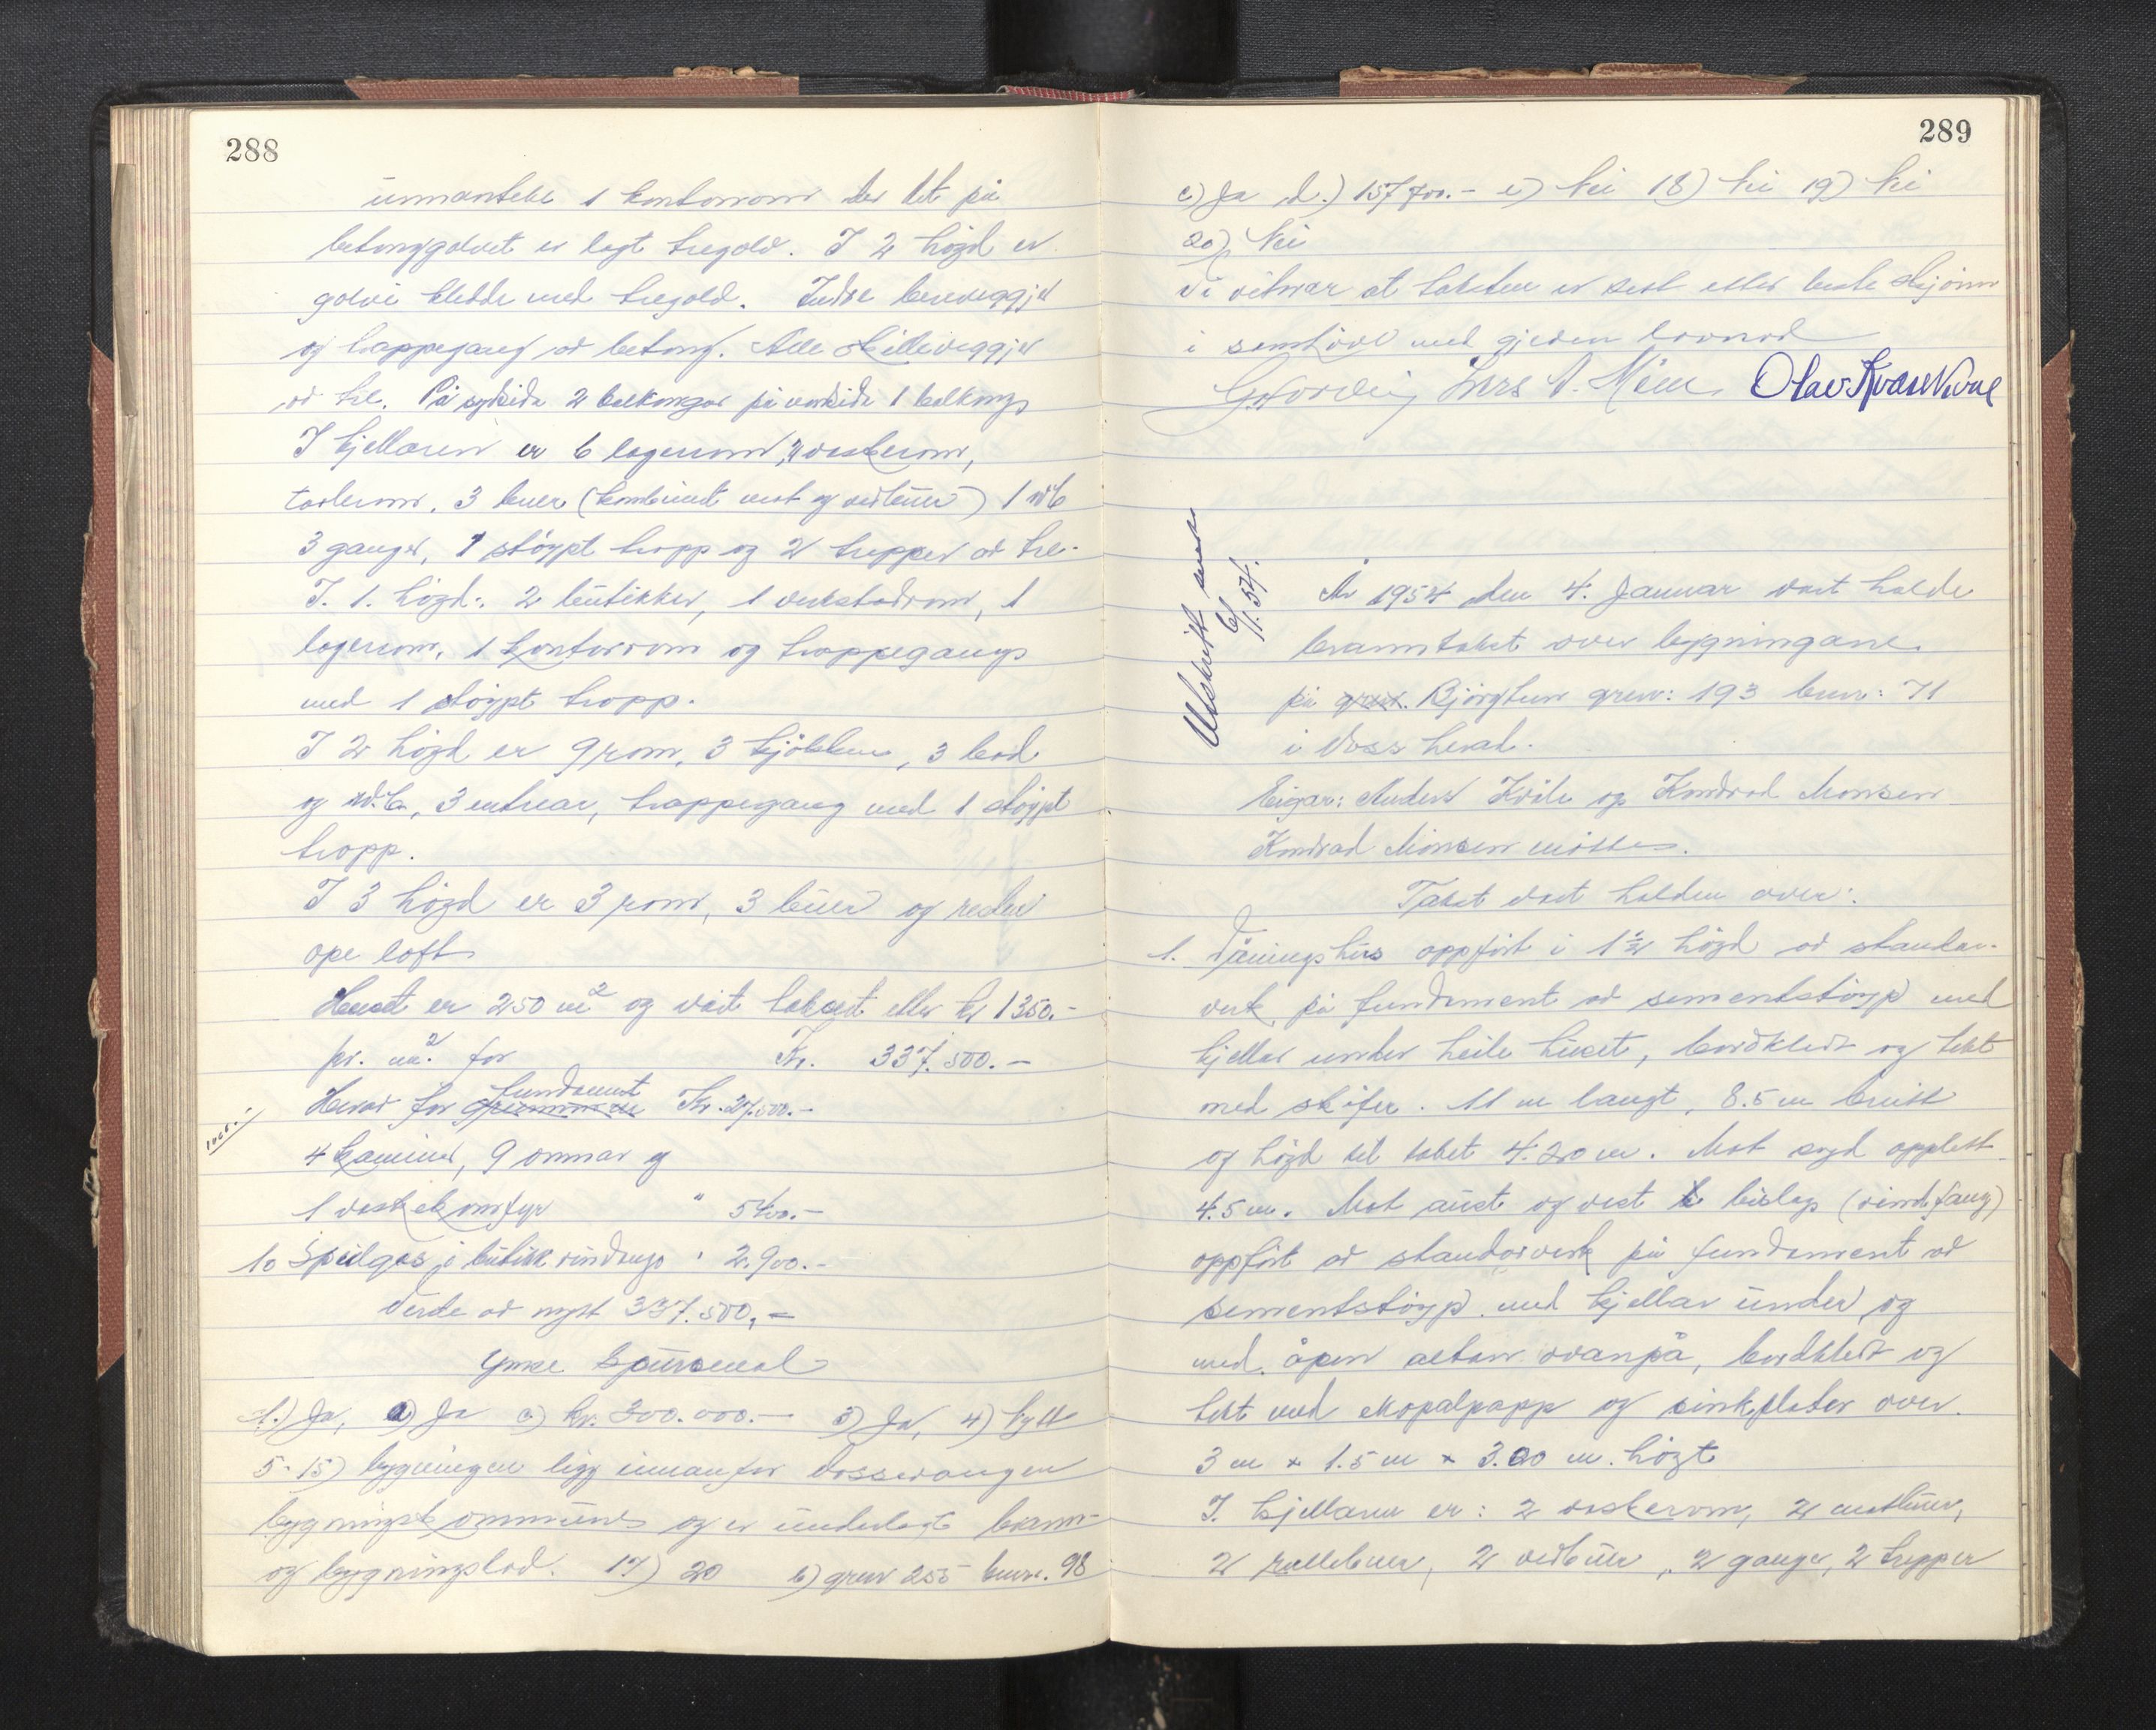 288
unnanteke 1 kontorrom der det på
betonggolvet er lagt tregolv. I 2 högd er
golvi kledde med tregolv. Indre bereveggjer
og trappegang av betong. Alle skilleveggjer
av tre. På sydsida 2 balkongar på nordsida 1 balkong
I kjellaren er 6 lagerrom, vaskerom,
3 buer (kombinert mat og vedbuer) 1 w6
3 ganger, 1 stöypt trapp og 2 trepper av tre.
I. 1. högd: 2 butikker, 1 verkstadrom, 1
lagerrom, 1 kontorrom og trappegang
med 1 stöypt trapp.
I 2 högd er 9 rom, 3 kjökken, 3 bad
og w.c., 3 entrear, trappegang med 1 stöypt
trapp.
I 3 högd er 3 rom, 3 buer og resten
ope loft
Huset er 250 m² og vart taksert etter kr 1350.-
pr. m². for Kr. 337.500.-
fundament
Herav for Kr. 27.500.-
4 kaminer, 9 omnar og
1 vaskekomfyr " 5400.-
10 Speilglas i butikk vindaugo " 2.900.-
Verde av nytt 337.500,-
Ymse Spursmal
1.) Ja, 2) Ja c) kr. 300.000.- 3) Ja, 4) Nytt
5-15) bygningen ligg innanfor Vossevangen
bygningskommune og er underlagt brann-
og bygningslov. 17) 20 b) grnr 255 bnr. 98
289
c) Ja d.) 157700.- e) Nei 18) Nei 19) Nei
20) Nei
Vi vitnar at taksten er sett etter beste skjönn
i samhöve med gjeven lovnad
Lars Olav Kvarekval
Utskrift sendt
6/1. 54.
År 1954 den 4. Januar vart halde
branntakst over bygningane
på Björgtun grnr: 193 bnr: 71
i Voss herad.
Eigar: Anders Kvåle og Konrad Monsen
Konrad Monsen mötte.
Takst vart halden over:
1. Våningshus oppfört i 1½ högd av standar-
verk på fundament av sementstöyp med
kjellar under heile huset, bordkledt og tekt
med skifer. 11 m langt, 8.5 m breitt
og högd til taket 4.20 m. Mot syd opplett
4.5 m. Mot aust og vest bislag (vindfang)
oppfört av standarverk på fundament av
sementstöyp med kjellar under og
med åpen altan ovanpå, bordkledt og
tekt med papp og sinkplater over.
3 m x 1.5 m x 3.00 m. högt
I. kjellaren er: 2 vaskerom, 2 matbuer,
2 rullebuer, 2 vedbuer, 2 ganger, 2 trepper